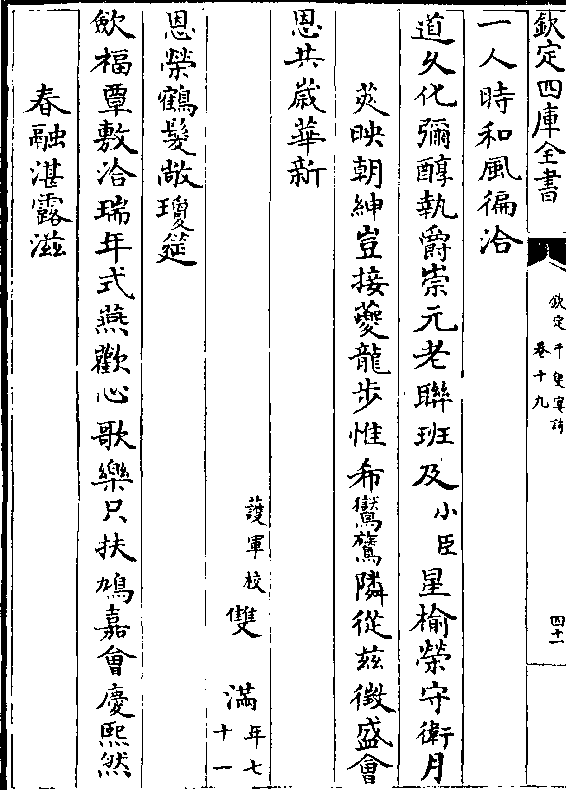 欽定四庫全書
一人時和風徧洽
道久化彌醇執爵崇元老聯班及小臣星榆榮守衛月
莢映朝紳豈接夔龍步惟希鴛鷺隣從兹徴盛會
恩共歲華新
護軍校雙滿年七十一
恩榮鶴髮敞瓊筵
飲福覃敷洽瑞年式燕歡心歌樂只扶鳩嘉會慶熙然
春融湛露滋
欽定千叟宴詩
卷十九
四十一